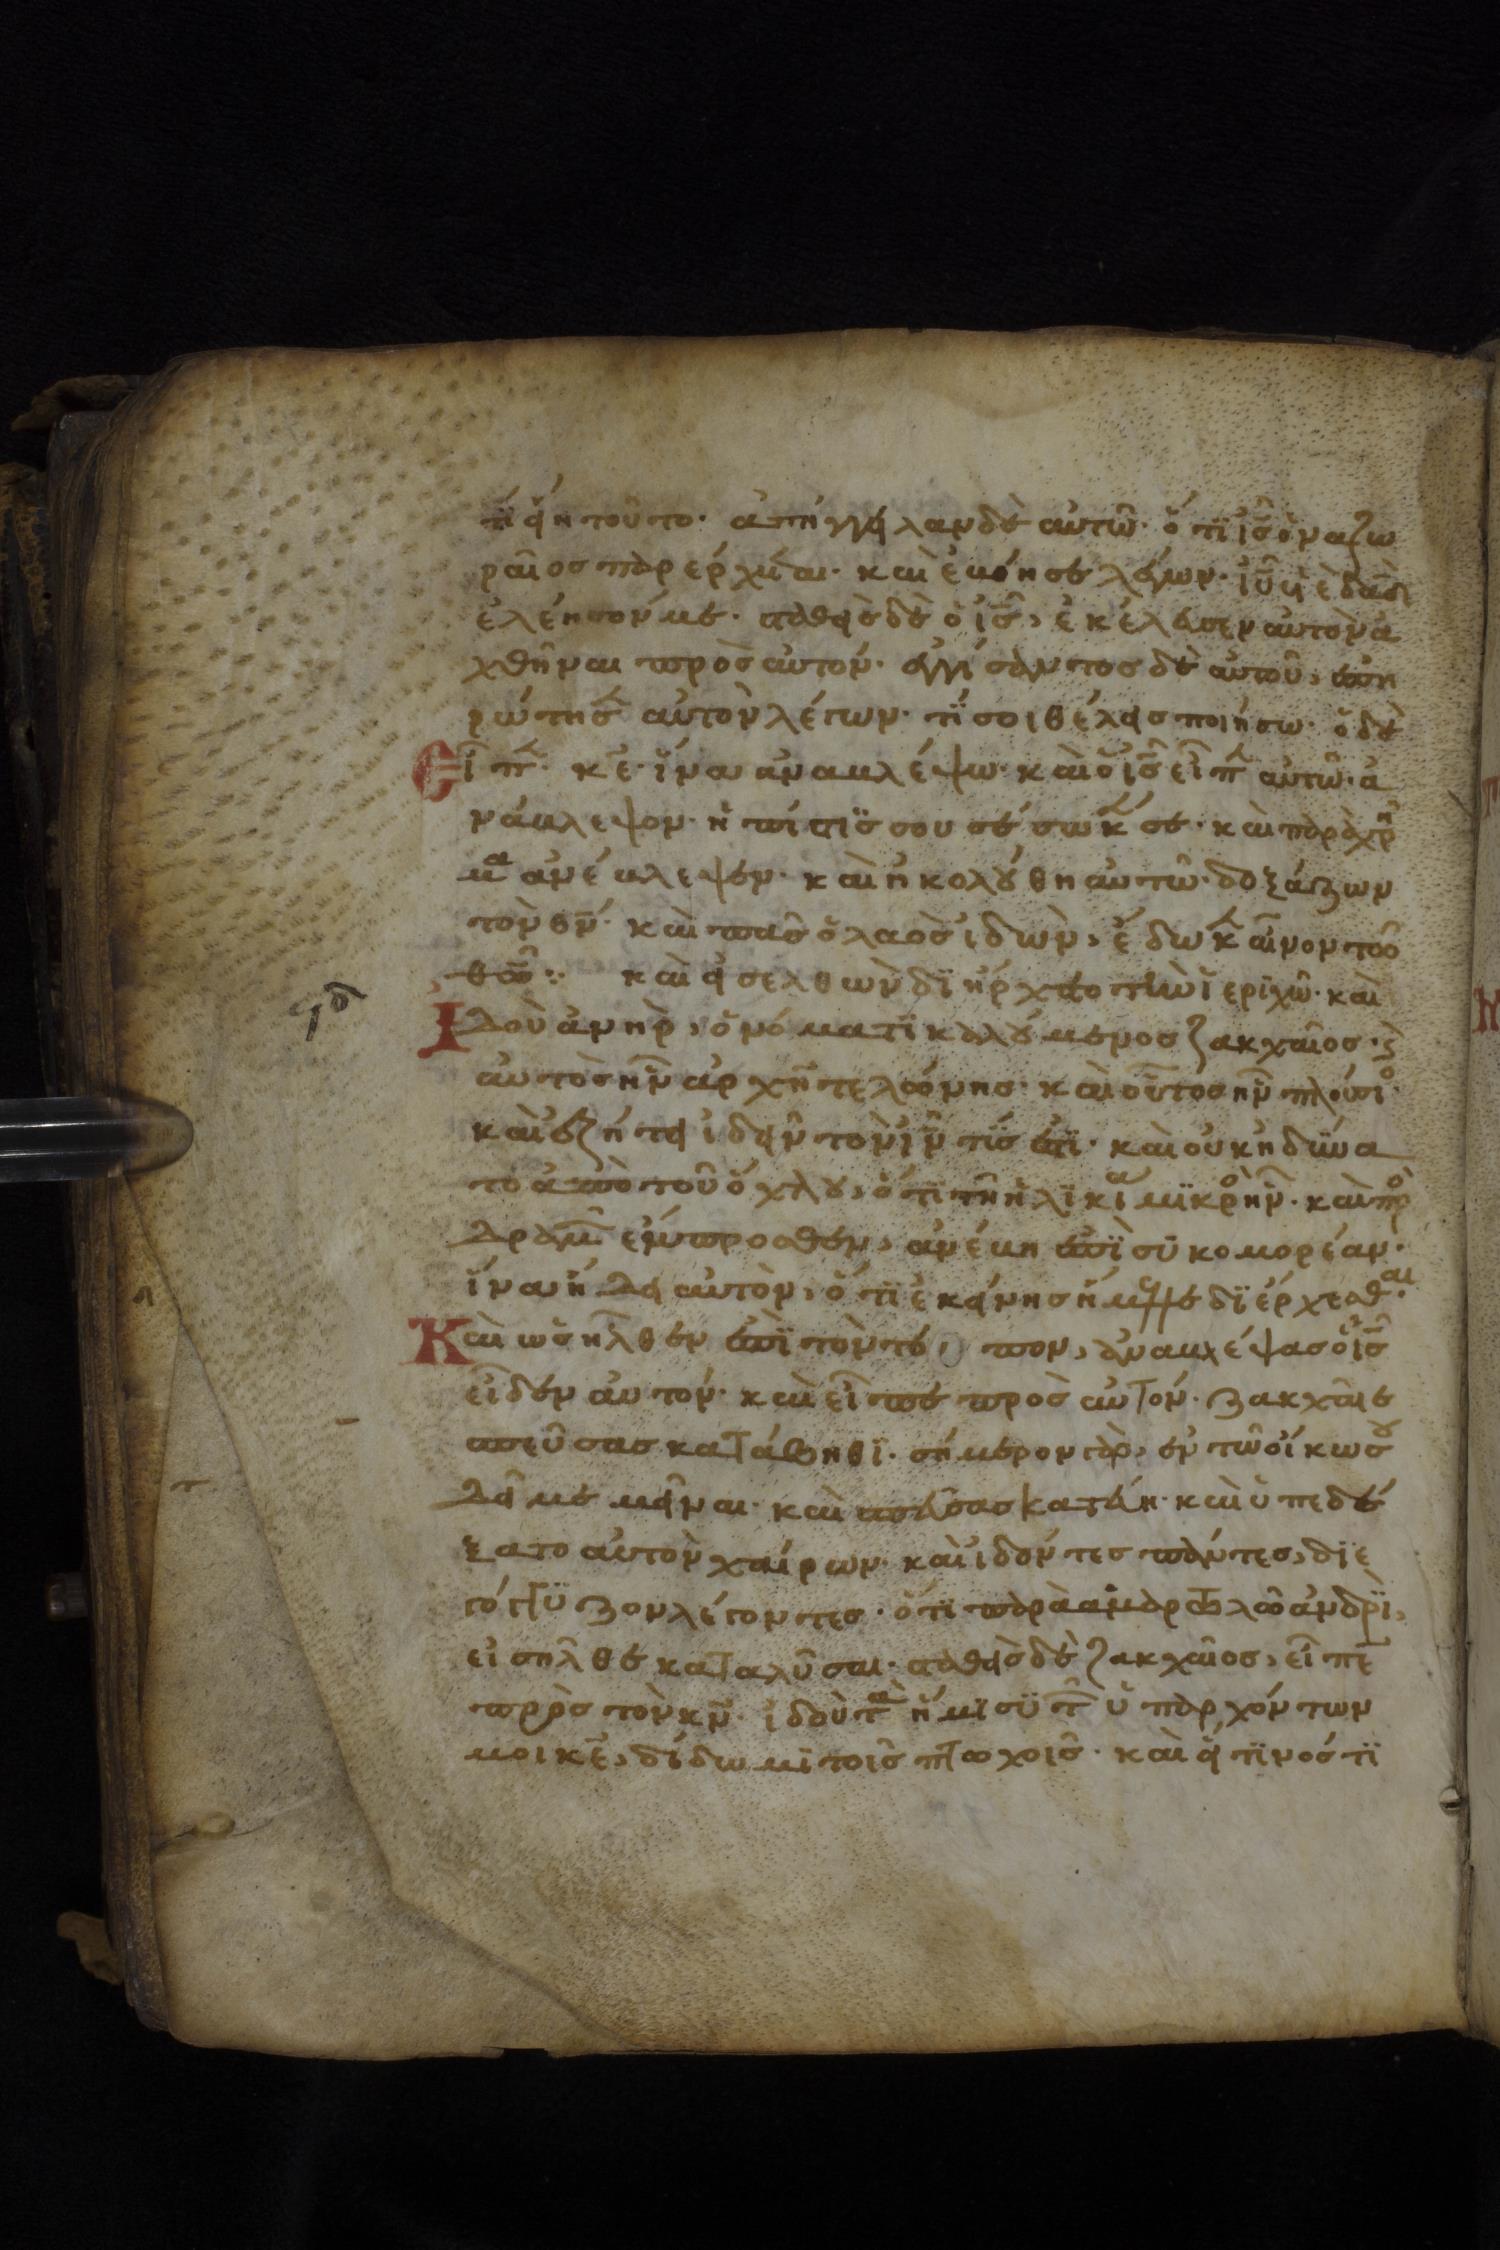 τί εἴη τοῦτο· ἀπήγγειλαν δὲ αὐτῶ· ὅτι ἰς ὁ ναζω
ραῖος παρέρχεται· καὶ ἐβόησε λέγων· ἰυ υἱὲ δαδ
ἐλέησόν με· σταθεὶς δὲ ὁ ἰς, ἐκέλευσεν αὐτὸν ἀ
χθῆναι πρὸς αὐτόν· ἐγγίσαντος δὲ αὐτοῦ, ἐπη
ρώτησ αὐτὸν λέγων· τί σοι θέλεις ποιήσω· ὁ δὲ
εἶπ· κε· ἵνα ἀναβλέψω· καὶ ὁ ἰς εἶπ αὐτῶ· ἀ
νάβλεψον· ἡ πίστις σου σέσωκέ σε· καὶ παραχρῆ
μα ἀνέβλεψεν· καὶ ἠκολούθη αὐτῶ· δοξάζων
τὸν θν· καὶ πᾶς ὁ λαὸς ἰδὼν, ἔδωκ αἶνον τῶ
θῶ: καὶ εἰσελθὼν διήρχετο τὴν ἱεριχῶ· καὶ
Ἰδοὺ ἀνὴρ, ὀνόματι καλούμενος ζακχαῖος· κ
αὐτὸς ἦν ἀρχητελώνης· καὶ οὗτος ἦν πλούσιο
καὶ ἐζήτει ἰδεῖν τὸν ἰν τίς ἐστι· καὶ οὐκ ἠδύνα
το ἀπὸ τοῦ ὄχλου, ὅτι τῆ ἡλικία μικρὸ ἦν· καὶ προ
δραμ ἔμπροσθεν, ἀνέβη ἐπὶ συκομορέαν·
ἵνα ἴδη αὐτὸν, ὅτι ἐκείνης ἤμελλε διέρχεσθαι·
Καὶ ὡς ἦλθεν ἐπὶ τὸν τό πον, ἀναβλέψας ὁ ἰς
εἶδεν αὐτόν· καὶ εἶπε πρὸς αὐτόν· ζακχαῖε
σπεῦσας κατάβηθι· σήμερον γὰρ, ἐν τῶ οἴκω σου
δεῖ με μεῖναι· καὶ σπεύσας κατέβη· καὶ ὑπεδέ
ξατο αὐτὸν χαίρων· καὶ ἰδόντες πάντες, διε
γόγγυζον λέγοντες· ὅτι παρὰ ἁμαρτωλῶ ἀνδρὶ,
εἰσῆλθε καταλῦσαι· σταθεὶς δὲ ζακχαῖος, εἶπε
πρὸς τὸν κν· ἰδοὺ τὰ ἡμίσυ τ ὑπαρχόντων
μοι κε, δίδωμι τοῖς πτωχοῖς· καὶ εἴ τινός τι